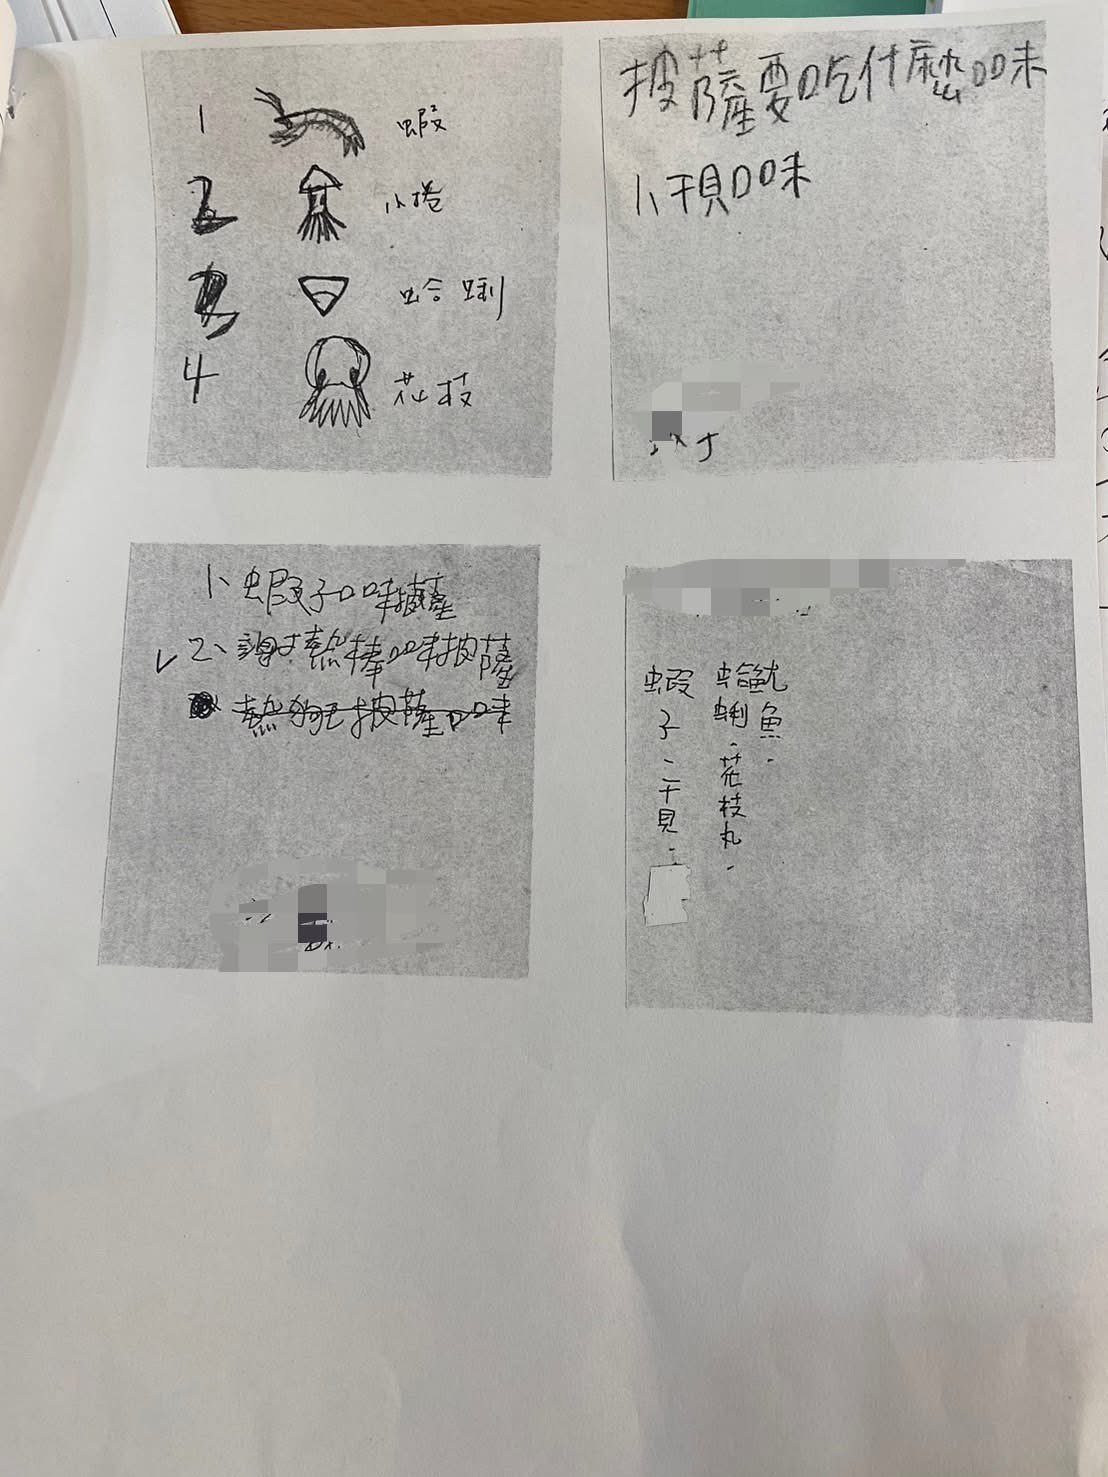 1 蝦
2 小捲
3 蛤蜊
4 花枝
披薩要吃什麼口味
1、干貝口味
1、蝦子口味披薩
✓2、謝忲熱棒口味披薩
熱狗披薩口味
魷魚、
蛤蜊、花枝丸、
蝦子、干貝、